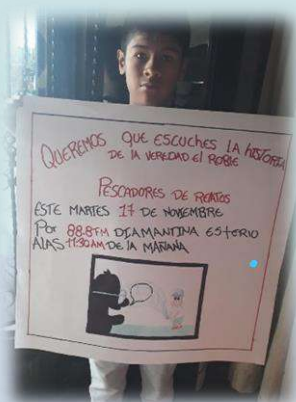 QUEREMOS QUE ESCUCHES LA HISTORIA
DE LA VEREDAD El ROBlE
PESCADORES DE RElATOS
ESTE MARTES 17 DE NOVIEMBRE
POR 88.8 FM DIAMANTINA ESTERIO
ALAS 11:30 AM DE LA MAÑANA